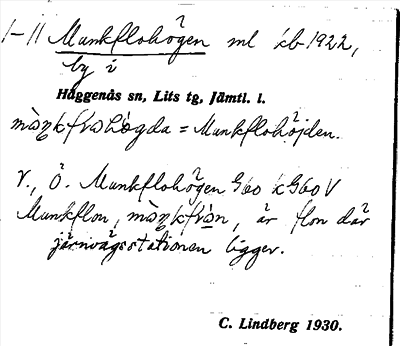 1-11 Munkflohögen ml kb 1922,
by i
Häggenås sn, Lits tg, Jämtl. l.
= Munkflohöjden.
V., Ö. Munkflohögen G60 k G60 V
Munkflon, är flon där
järnvägsstationen ligger.
C. Lindberg 1930.